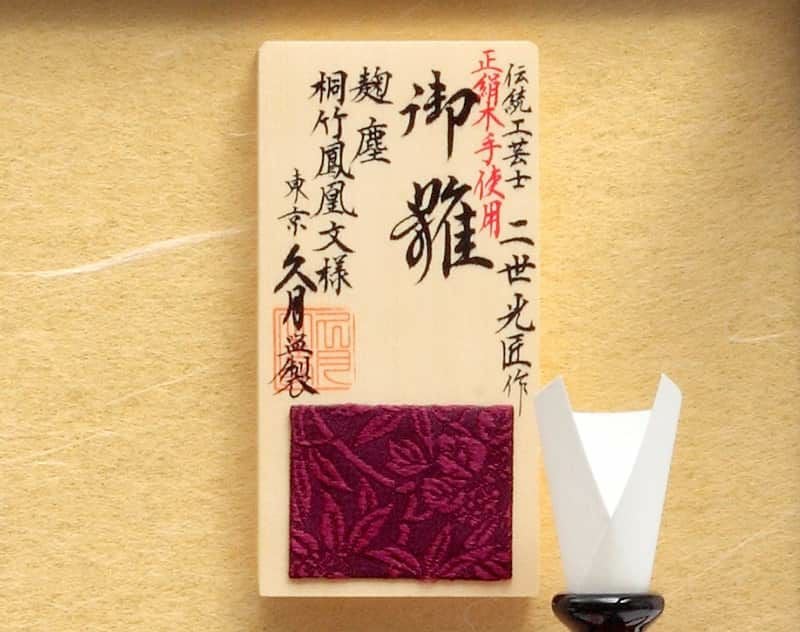 伝統工芸士 二世光匠作
正絹木手使用
御雛
麹塵
桐竹鳳凰文様
東京 久月 謹製